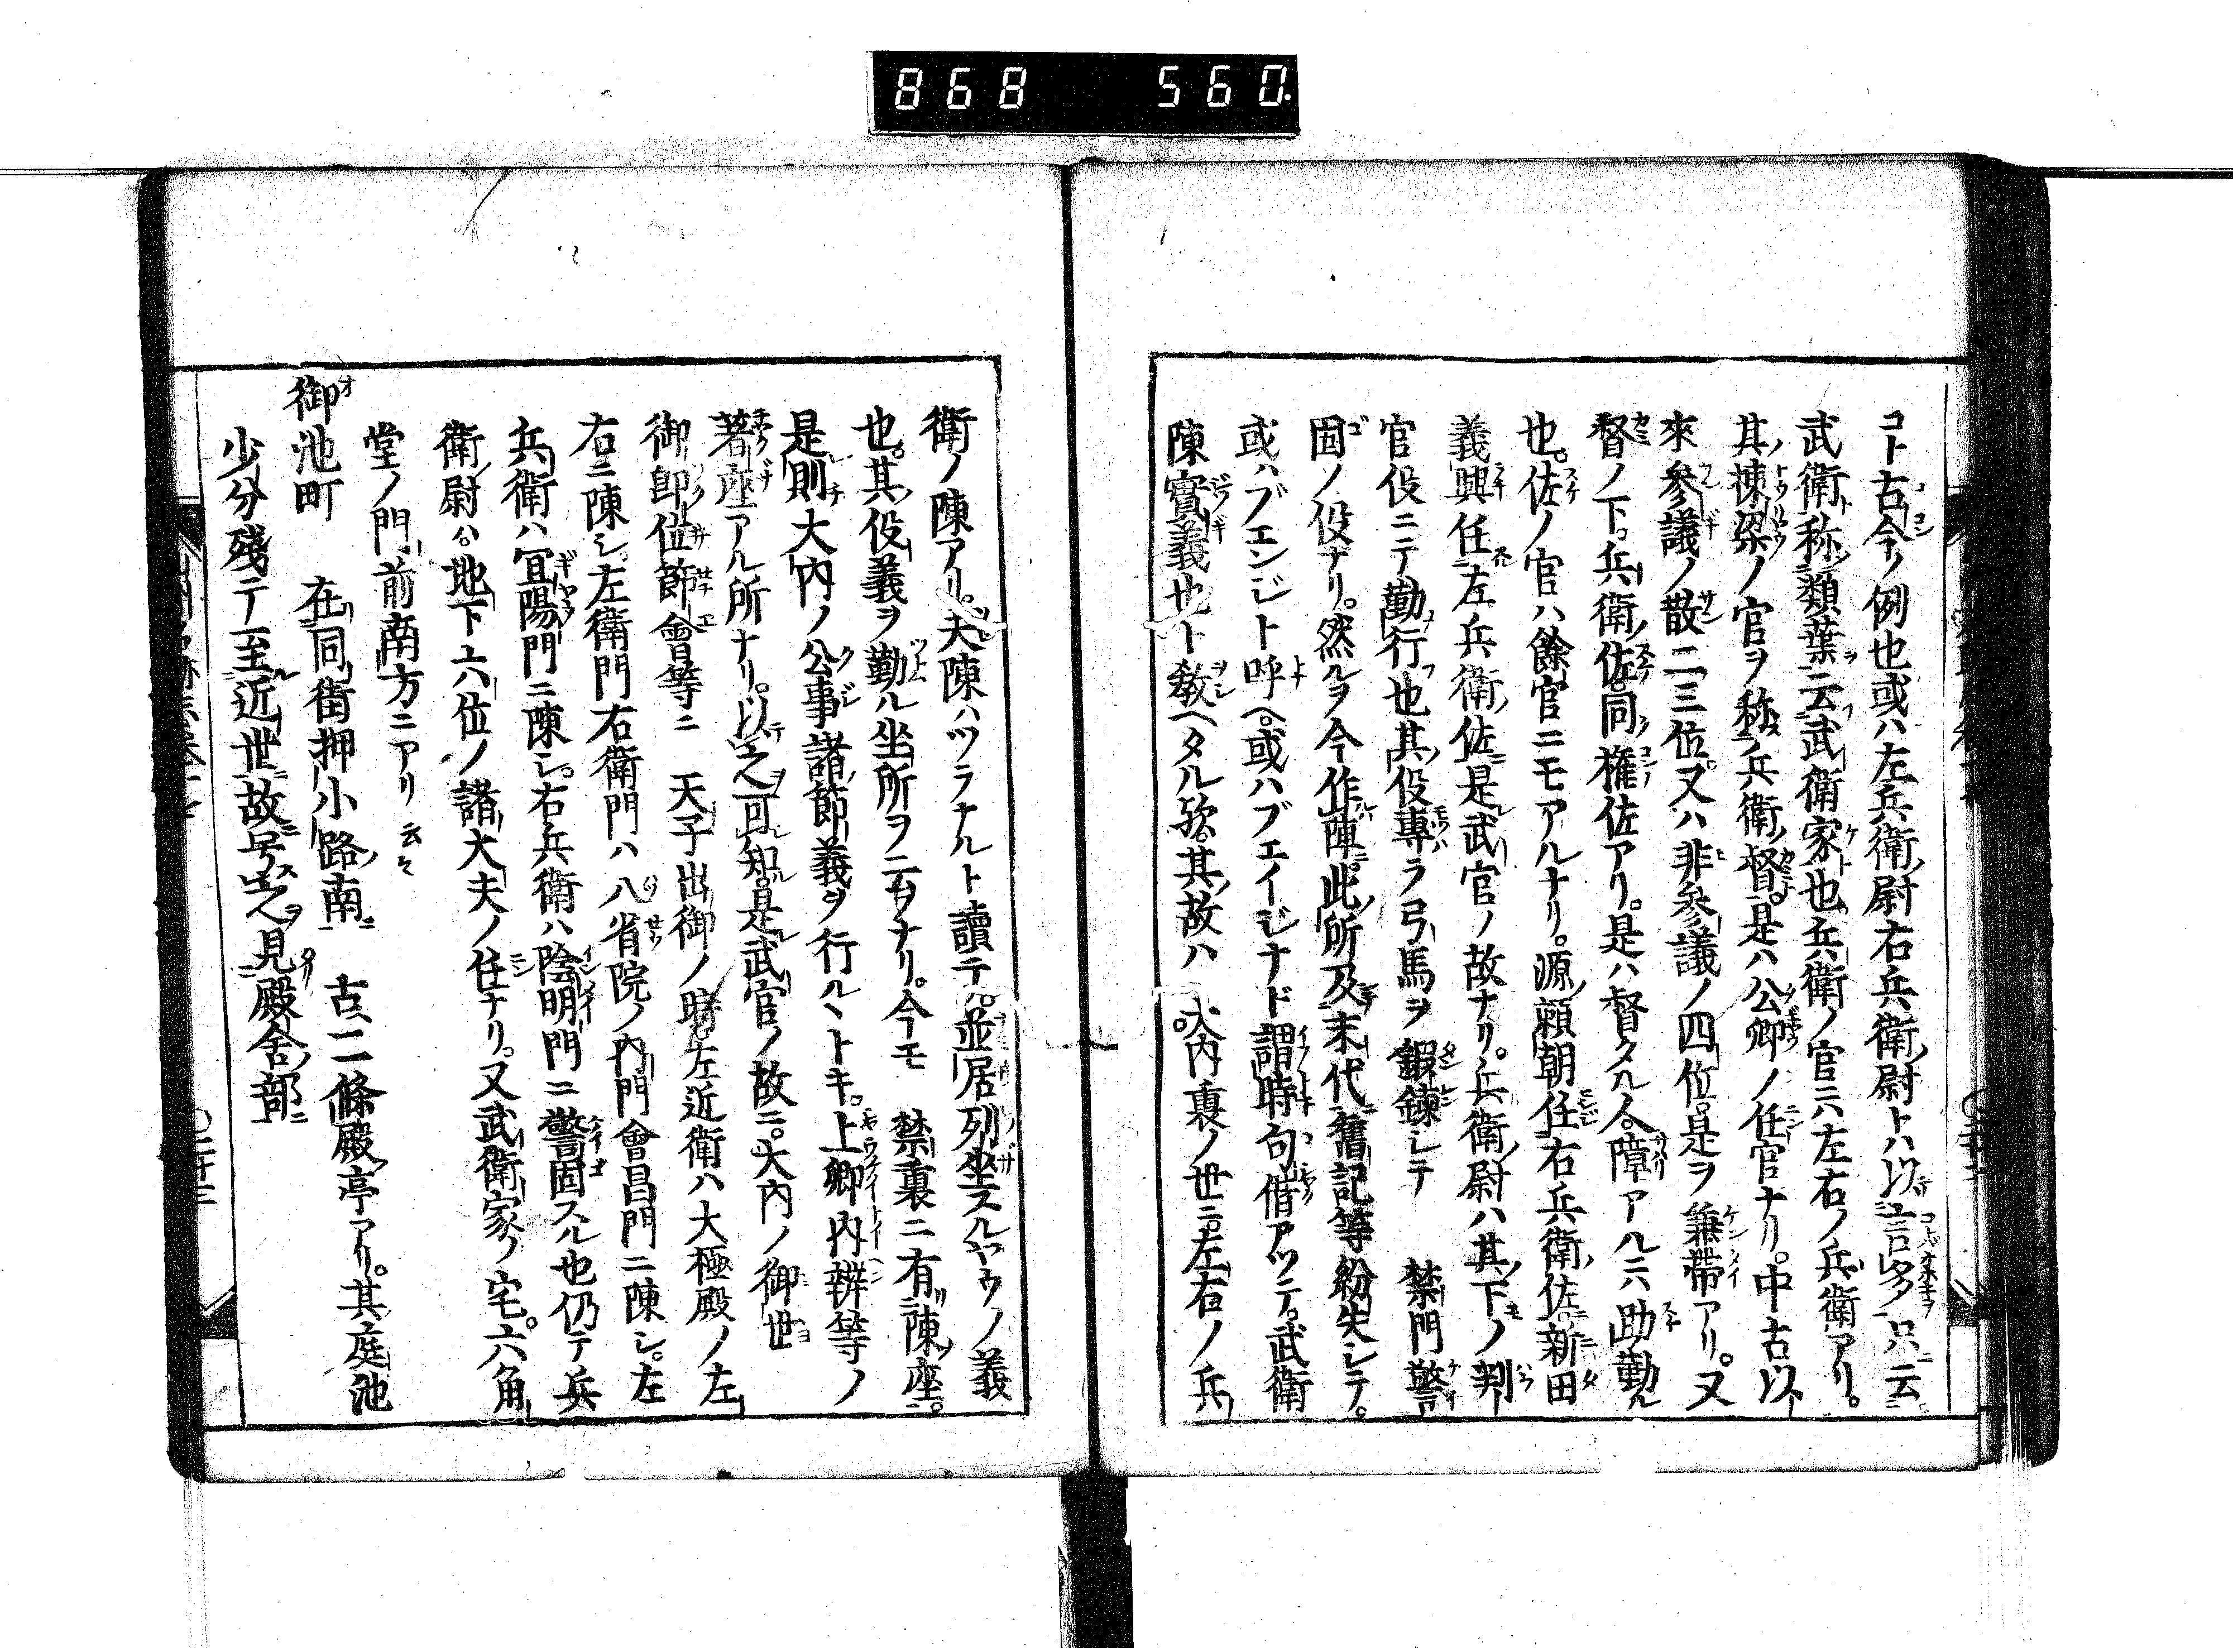 868 560.
コト古今ノ例也或ハ左兵衛ノ尉右兵衛ノ尉トハ以言多只云
武衛称類葉ニ云武衛家也兵衛ノ官ニハ左右ノ兵衛アリ。
其棟梁ノ官ヲ称ス兵衛ノ督。是ハ公卿ノ任官ナリ。中古以
來参議ノ散二三位。又ハ非参議ノ四位。是ヲ兼帯アリ。又
督ノ下。兵衛ノ佐。同権佐アリ。是ハ督タル人。障アル六助勤ル
也。佐ノ官ハ餘官ニモアルナリ。源ノ頼朝任右兵衛ノ佐。新田
義興任左兵衛ノ佐是武官ノ故ナリ。兵衛ノ尉ハ其下ノ判
官役ニテ勤行也其役專ラ弓馬ヲ鍜錬シテ 禁門警
固ノ役ナリ。然ルヲ今作陣此所及末代舊記等紛失シテ。
或ハブエンジト呼ヘ。或ハブエイジナド謂時句借アツテ。武衛
陳實義也ト教ヘタル歟。其故ハ 大内裏ノ世ニ。左右ノ兵
衛ノ陳アリ。夫陳ハツラナルト讀テ。並居列坐スルヤウノ義
也。其役義ヲ勤ル坐所ヲ云ナリ。今モ 禁裏ニ有陳ノ座。
是則大内ノ公事諸節義ヲ行ルヽトキ。上卿内辨等ノ
著座アル所ナリ。以之可知。是武官ノ故ニ。大内ノ御世
御即位節會等ニ 天子出御ノ時。左近衛ハ大極殿ノ左
右ニ陳シ。左衛門右衛門ハ八省院ノ内門會昌門ニ陳シ。左
兵衛ハ宜陽門ニ陳シ。右兵衛ハ陰明門ニ警固スル也仍テ兵
衛ノ尉ハ。地下六位ノ諸大夫ノ任ナリ。又武衛家ノ宅。六角
堂ノ門前南方ニアリ云々
御池町 在同街押小路ノ南 古ヘ二條殿亭アリ。其庭池
少分殘テ至近世故号之見殿舎ノ部